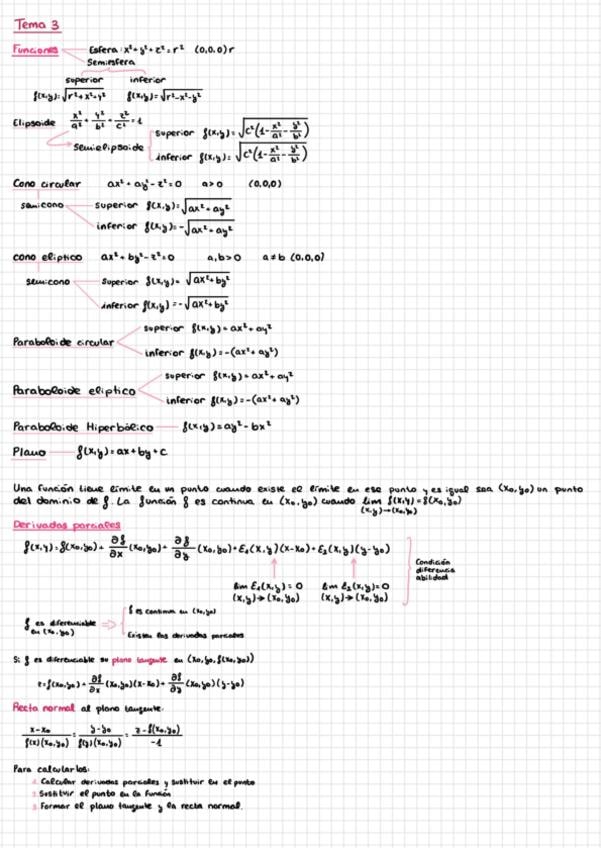 Tema 3
Funciones Esfera: x²+y²+z²=r² (0,0,0) r
Semiesfera
superior inferior
f(x,y)=√(r²+x²+y²) f(x,y)=√(r²-x²-y²)
Elipsoide x²/a² + y²/b² + z²/c² = 1
Semielipsoide superior f(x,y)=√(c²(1-x²/a²-y²/b²))
inferior f(x,y)=√(c²(1-x²/a²-y²/b²))
Cono circular ax²+ay²-z²=0 a>0 (0,0,0)
semicono superior f(x,y)=√(ax²+ay²)
inferior f(x,y)=-√(ax²+ay²)
cono eliptico ax²+by²-z²=0 a,b>0 a≠b (0,0,0)
semicono Superior f(x,y)= √(ax²+by²)
inferior f(x,y)=-√(ax²+by²)
Paraboloide circular superior f(x,y)=ax²+ay²
inferior f(x,y)=-(ax²+ay²)
Paraboloide eliptico superior f(x,y)=ax²+ay²
inferior f(x,y)=-(ax²+ay²)
Paraboloide Hiperbólico f(x,y)=ay²-bx²
Plano f(x,y)=ax+by+c
Una función tiene límite en un punto cuando existe el límite en ese punto y es igual sea (x₀,y₀) un punto
del dominio de f. La función f es continua en (x₀,y₀) cuando lim f(x,y)=f(x₀,y₀)
(x,y)→(x₀,y₀)
Derivadas parciales
f(x,y)=f(x₀,y₀)+ ∂f/∂x (x₀,y₀)+ ∂f/∂y (x₀,y₀)+E₁(x,y)(x-x₀)+E₂(x,y)(y-y₀)
Condición
diferencia
abilidad
lim E₁(x,y)=0 lim E₂(x,y)=0
(x,y)→(x₀,y₀) (x,y)→(x₀,y₀)
f es diferenciable ⇒ f es continua en (x₀,y₀)
en (x₀,y₀)
Existen las derivadas parciales
Si f es diferenciable su plano tangente en (x₀,y₀,f(x₀,y₀))
z=f(x₀,y₀)+ ∂f/∂x (x₀,y₀)(x-x₀)+ ∂f/∂y (x₀,y₀)(y-y₀)
Recta normal al plano tangente:
x-x₀/f(x)(x₀,y₀) = y-y₀/f(y)(x₀,y₀) = z-f(x₀,y₀)/-1
Para calcularlos:
1. Calcular derivadas parciales y sustituir en el punto
2. Sustituir el punto en la función
3. Formar el plano tangente y la recta normal.